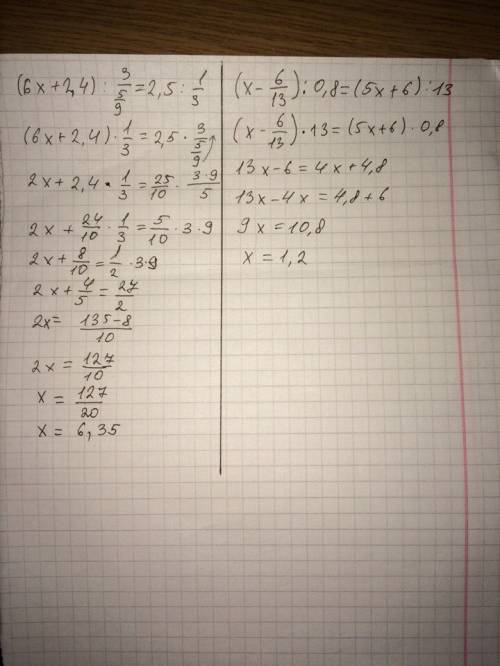 (6x+2,4) : 3/(5/9) = 2,5 : 1/3
(6x+2,4) · 1/3 = 2,5 · 3/(5/9)
2x + 2,4 · 1/3 = 25/10 · 3·9/5
2x + 24/10 · 1/3 = 5/10 · 3·9
2x + 8/10 = 1/2 · 3·9
2x + 4/5 = 27/2
2x = 135-8/10
2x = 127/10
x = 127/20
x = 6,35
(x - 6/13) : 0,8 = (5x+6) : 13
(x - 6/13) · 13 = (5x+6) · 0,8
13x - 6 = 4x + 4,8
13x - 4x = 4,8 + 6
9x = 10,8
x = 1,2